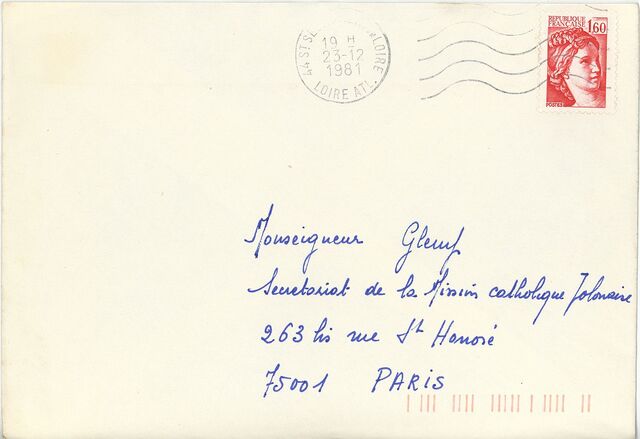 44 ST SE LOIRE
19 H
23-12
1981
LOIRE ATL.
REPUBLIQUE
FRANÇAISE 1,60
POSTES
Monseigneur Glemp
Secretariat de la Mission catholique Polonaise
263 bis rue St Honoré
75001 PARIS